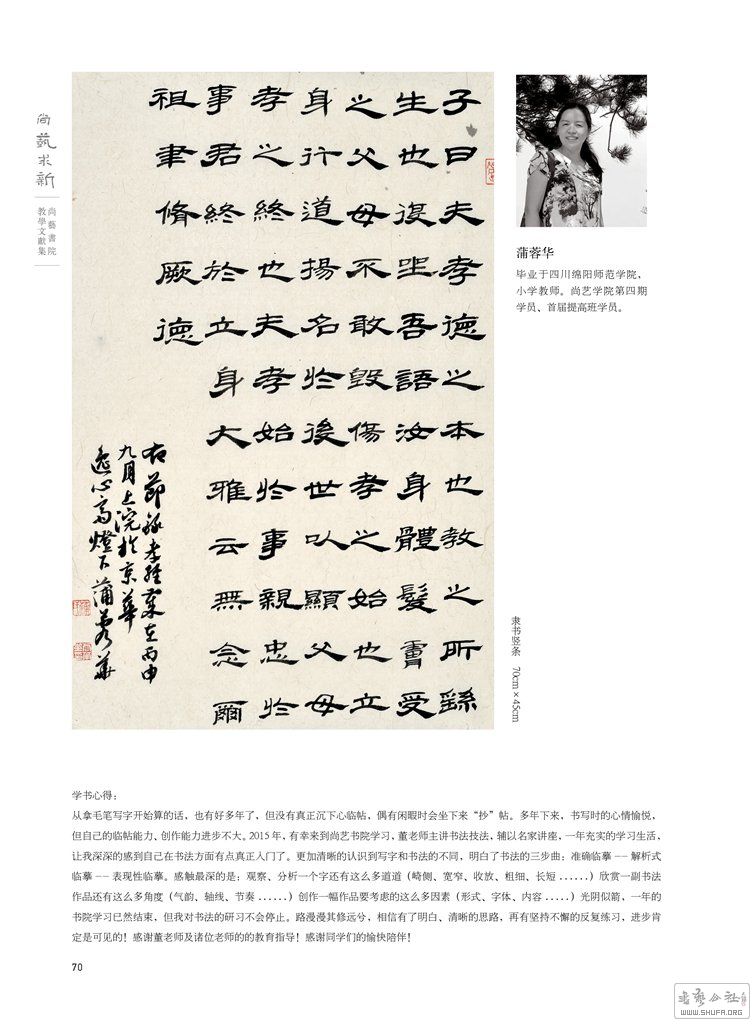 尚藝求新
尚藝書院
教學文獻集
子曰夫孝德之本也教之所繇
生也復坐吾語汝身體髮膚受
之父母不敢毀傷孝之始也立
身行道揚名於後世以顯父母
孝之終也夫孝始於事親忠於
事君終於立身大雅云無念爾
祖聿脩厥德
右節錄孝經歲在丙申
九月上浣於京華
逸心齋燈下蒲蓉華
蒲蓉华
毕业于四川绵阳师范学院，
小学教师。尚艺学院第四期
学员、首届提高班学员。
隶书竖条 70cm×45cm
学书心得：
从拿毛笔写字开始算的话，也有好多年了，但没有真正沉下心临帖，偶有闲暇时会坐下来“抄”帖。多年下来，书写时的心情愉悦，
但自己的临帖能力、创作能力进步不大。2015年，有幸来到尚艺书院学习，董老师主讲书法技法，辅以名家讲座，一年充实的学习生活，
让我深深的感到自己在书法方面有点真正入门了。更加清晰的认识到写字和书法的不同，明白了书法的三步曲：准确临摹——解析式
临摹——表现性临摹。感触最深的是：观察、分析一个字还有这么多道道（畸侧、宽窄，收放、粗细、长短......）欣赏一副书法
作品还有这么多角度（气韵、轴线、节奏......）创作一幅作品要考虑的这么多因素（形式、字体、内容.....）光阴似箭，一年的
书院学习已然结束，但我对书法的研习不会停止。路漫漫其修远兮，相信有了明白、清晰的思路，再有坚持不懈的反复练习，进步肯
定是可见的！感谢董老师及诸位老师的的教育指导！感谢同学们的愉快陪伴！
70
WWW.SHUFA.ORG